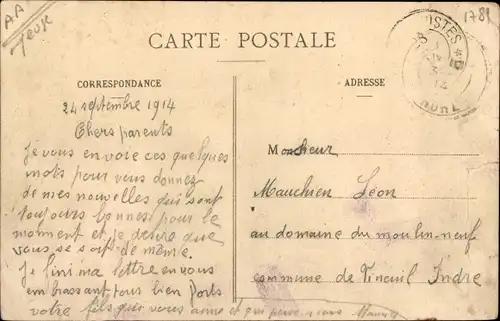 AA
1781
CARTE POSTALE
CORRESPONDANCE
ADRESSE
24 septembre 1914
Chers parents
Je vous en voie ces quelques
mots pour vous donnez
de mes nouvelles qui sont
toujours bonnes pour le
moment et je désire que
vous se soit de même.
Je fini ma lettre en vous
embrassant tous bien forts
votre fils qui vous aime et qui pense a vous
Monsieur
Mauchien Léon
au domaine du moulin-neuf
commune de Vineuil Indre